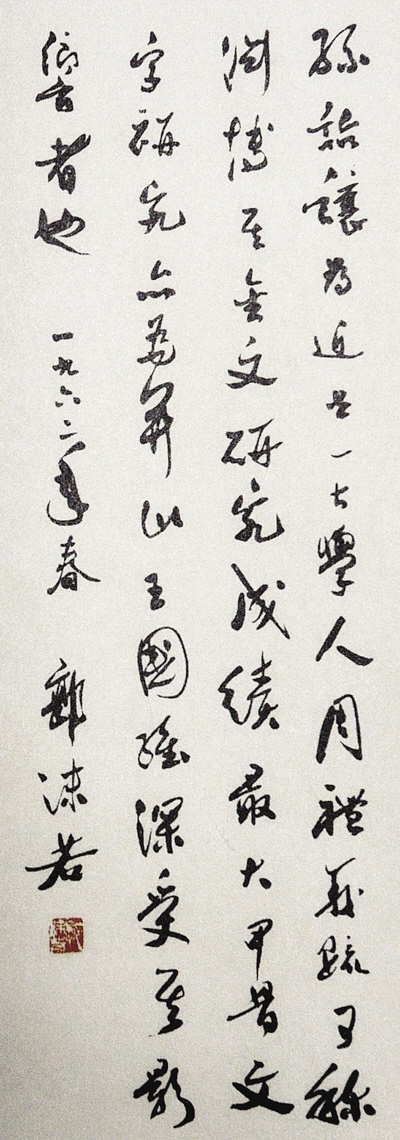 孫詒讓為近世一大學人周禮義疏可稱
淵博其金文研究成績最大甲骨文
字研究亦為開山王國維深受其影
響者也 一九六二年春 郭沫若